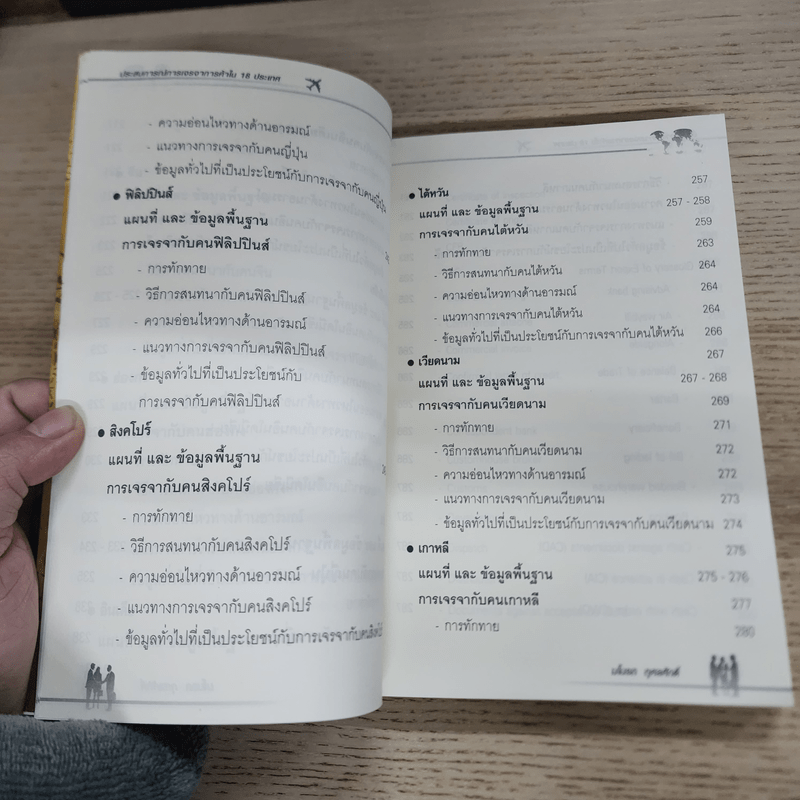 ประสบการณ์การเจรจาการค้าใน 18 ประเทศ
- ความอ่อนไหวทางด้านอารมณ์
- แนวทางการเจรจากับคนญี่ปุ่น
- ข้อมูลทั่วไปที่เป็นประโยชน์กับการเจรจากับคนญี่ปุ่น
● ฟิลิปปินส์
แผนที่ และ ข้อมูลพื้นฐาน
การเจรจากับคนฟิลิปปินส์
- การทักทาย
- วิธีการสนทนากับคนฟิลิปปินส์
- ความอ่อนไหวทางด้านอารมณ์
- แนวทางการเจรจากับคนฟิลิปปินส์
- ข้อมูลทั่วไปที่เป็นประโยชน์กับ
การเจรจากับคนฟิลิปปินส์
● สิงคโปร์
แผนที่ และ ข้อมูลพื้นฐาน
การเจรจากับคนสิงคโปร์
- การทักทาย
- วิธีการสนทนากับคนสิงคโปร์
- ความอ่อนไหวทางด้านอารมณ์
- แนวทางการเจรจากับคนสิงคโปร์
- ข้อมูลทั่วไปที่เป็นประโยชน์กับการเจรจากับคนสิงคโปร์
● ไต้หวัน 257
แผนที่ และ ข้อมูลพื้นฐาน 257 - 258
การเจรจากับคนไต้หวัน 259
- การทักทาย 263
- วิธีการสนทนากับคนไต้หวัน 264
- ความอ่อนไหวทางด้านอารมณ์ 264
- แนวทางการเจรจากับคนไต้หวัน 264
- ข้อมูลทั่วไปที่เป็นประโยชน์กับการเจรจากับคนไต้หวัน 266
● เวียดนาม 267
แผนที่ และ ข้อมูลพื้นฐาน 267 - 268
การเจรจากับคนเวียดนาม 269
- การทักทาย 271
- วิธีการสนทนากับคนเวียดนาม 272
- ความอ่อนไหวทางด้านอารมณ์ 272
- แนวทางการเจรจากับคนเวียดนาม 273
- ข้อมูลทั่วไปที่เป็นประโยชน์กับการเจรจากับคนเวียดนาม 274
● เกาหลี 275
แผนที่ และ ข้อมูลพื้นฐาน 275 - 276
การเจรจากับคนเกาหลี 277
- การทักทาย 280